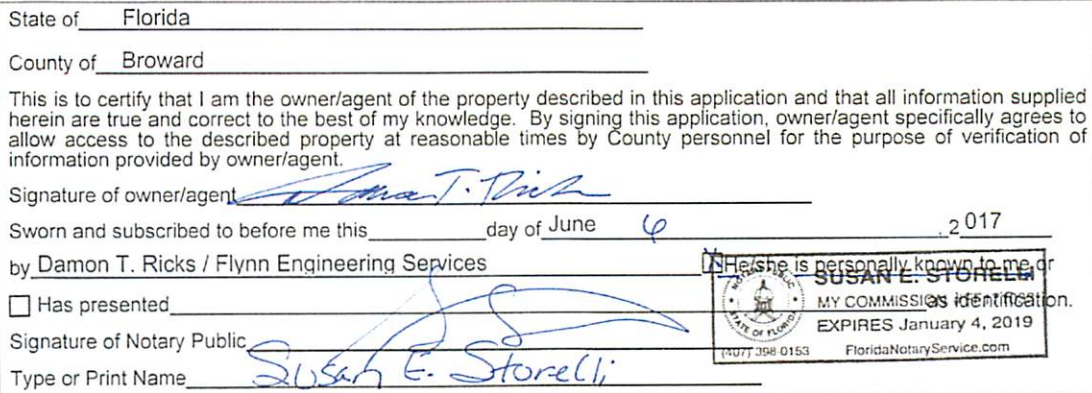 State of Florida
County of Broward
This is to certify that I am the owner/agent of the property described in this application and that all information supplied
herein are true and correct to the best of my knowledge. By signing this application, owner/agent specifically agrees to
allow access to the described property at reasonable times by County personnel for the purpose of verification of
information provided by owner/agent.
Signature of owner/agent Damon T. Ricks
Sworn and subscribed to before me this day of June 6, 2017
by Damon T. Ricks / Flynn Engineering Services X He/she is personally known to me or
Has presented as identification.
SUSAN E. STORELLI
MY COMMISSION
EXPIRES January 4, 2019
(407) 398-0153 FloridaNotaryService.com
NOTARY PUBLIC
STATE OF FLORIDA
Signature of Notary Public
Type or Print Name Susan E. Storelli